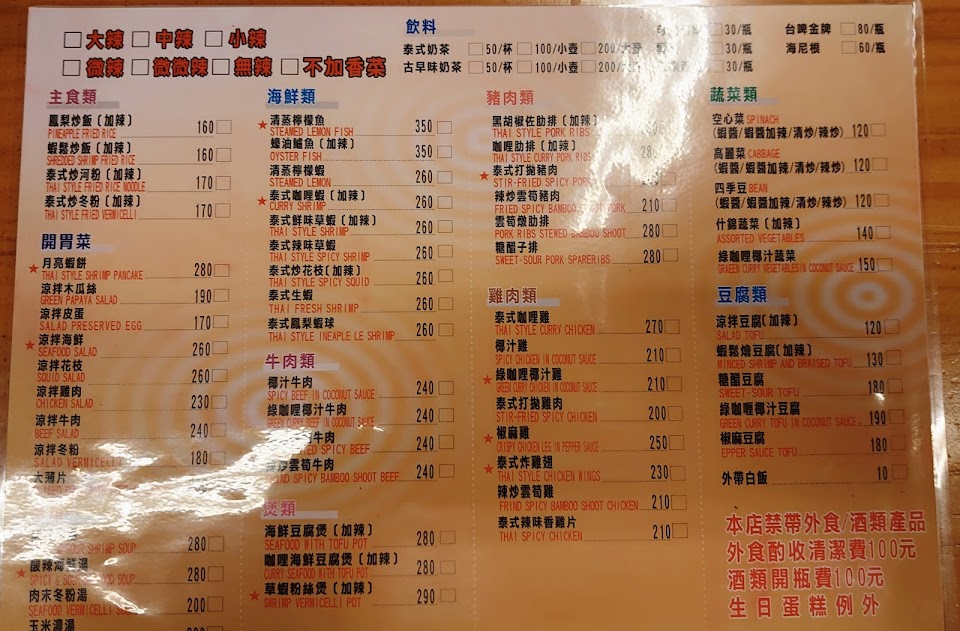 □ 大辣 □ 中辣 □ 小辣
□ 微辣 □ 微微辣 □ 無辣 □ 不加香菜
飲料
泰式奶茶 □ 50/杯 □ 100/小壺 □ 200/大
古早味奶茶 □ 50/杯 □ 100/小壺 □ 200/
30/瓶
30/瓶
台啤金牌 □ 80/瓶
海尼根 □ 60/瓶
主食類
鳳梨炒飯(加辣)
PINEAPPLE FRIED RICE 160 □
蝦鬆炒飯(加辣)
SHREDDED SHRIMP FRIED RICE 160 □
泰式炒河粉(加辣)
THAI STYLE FRIED RICE NOODLE 170 □
泰式炒冬粉(加辣)
THAI STYLE FRIED VERMICELLI 170 □
開胃菜
★ 月亮蝦餅
THAI STYLE SHRIMP PANCAKE 280 □
涼拌木瓜絲
GREEN PAPAYA SALAD 190 □
涼拌皮蛋
SALAD PRESERVED EGG 170 □
★ 涼拌海鮮
SEAFOOD SALAD 260 □
涼拌花枝
SQUID SALAD 260 □
涼拌雞肉
CHICKEN SALAD 230 □
涼拌牛肉
BEEF SALAD 240 □
涼拌冬粉
SALAD VERMICELLI 180 □
大薄片
SHRIMP SOUP 280 □
★ 酸辣海鮮湯
SPICY & SOUP 280 □
肉末冬粉湯
SEAFOOD VERMICELLI 200 □
玉米濃湯
海鮮類
★ 清蒸檸檬魚
STEAMED LEMON FISH 350 □
蠔油鱸魚(加辣)
OYSTER FISH 350 □
清蒸檸檬蝦
STEAMED LEMON 260 □
★ 泰式咖哩蝦(加辣)
CURRY SHRIMP 260 □
泰式鮮味草蝦(加辣)
THAI STYLE SHRIMP 260 □
泰式辣味草蝦
THAI STYLE SPICY SHRIMP 260 □
泰式炒花枝(加辣)
THAI STYLE SPICY SQUID 260 □
泰式生蝦
THAI FRESH SHRIMP 260 □
泰式鳳梨蝦球
THAI STYLE INEAPLE LE SHRIMP 260 □
牛肉類
椰汁牛肉
SPICY BEEF IN COCONUT SAUCE 240 □
綠咖哩椰汁牛肉
GREEN CURRY BEEF IN COCONUT SAUCE 240 □
牛肉
SPICY BEEF 240 □
炒雲筍牛肉
SPICY BAMBOO SHOOT BEEF 240 □
煲類
海鮮豆腐煲(加辣)
SEAFOOD WITH TOFU POT 280 □
咖哩海鮮豆腐煲(加辣)
CURRY SEAFOOD WITH TOFU POT 280 □
★ 草蝦粉絲煲(加辣)
SHRIMP VERMICELLI POT 290 □
豬肉類
黑胡椒佐肋排(加辣)
THAI STYLE PORK RIBS
咖哩肋排(加辣)
THAI STYLE CURRY PORK RIBS
★ 泰式打拋豬肉
STIR-FRIED SPICY PORK
辣炒雲筍豬肉
FRIED SPICY BAMBOO PORK 210 □
雲筍燉肋排
PORK RIBS STEWED BAMBOO SHOOT 280 □
糖醋子排
SWEET-SOUR PORK SPARERIBS 280 □
雞肉類
泰式咖哩雞
THAI STYLE CURRY CHICKEN 270 □
椰汁雞
SPICY CHICKEN IN COCONUT SAUCE 210 □
★ 綠咖哩椰汁雞
GREEN CURRY CHICKEN IN COCONUT SAUCE 210 □
泰式打拋雞肉
STIR-FRIED SPICY CHICKEN 200 □
★ 椒麻雞
CRISPY CHICKEN LEG IN PEPPER SAUCE 250 □
★ 泰式炸雞翅
THAI STYLE CHICKEN WINGS 230 □
辣炒雲筍雞
FRIND SPICY BAMBOO SHOOT CHICKEN 210 □
泰式辣味香雞片
THAI SPICY CHICKEN 210 □
蔬菜類
空心菜 SPINACH
(蝦醬/蝦醬加辣/清炒/辣炒) 120 □
高麗菜 CABBAGE
(蝦醬/蝦醬加辣/清炒/辣炒) 120 □
四季豆 BEAN
(蝦醬/蝦醬加辣/清炒/辣炒) 120 □
什錦蔬菜(加辣)
ASSORTED VEGETABLES 140 □
綠咖哩椰汁蔬菜
GRAEEN CURRY VEGETABLES IN COCONUT SAUCE 150 □
豆腐類
涼拌豆腐(加辣)
SALAD TOFU 120 □
蝦鬆燴豆腐(加辣)
MINCED SHRIMP AND BRAISED TOFU 130 □
糖醋豆腐
SWEET-SOUR TOFU 180 □
綠咖哩椰汁豆腐
GREEN CURRY TOFU IN COCONUT SAUCE 190 □
椒麻豆腐
EPPER SAUCE TOFU 180 □
外帶白飯 10 □
本店禁帶外食/酒類產品
外食酌收清潔費100元
酒類開瓶費100元
生日蛋糕例外